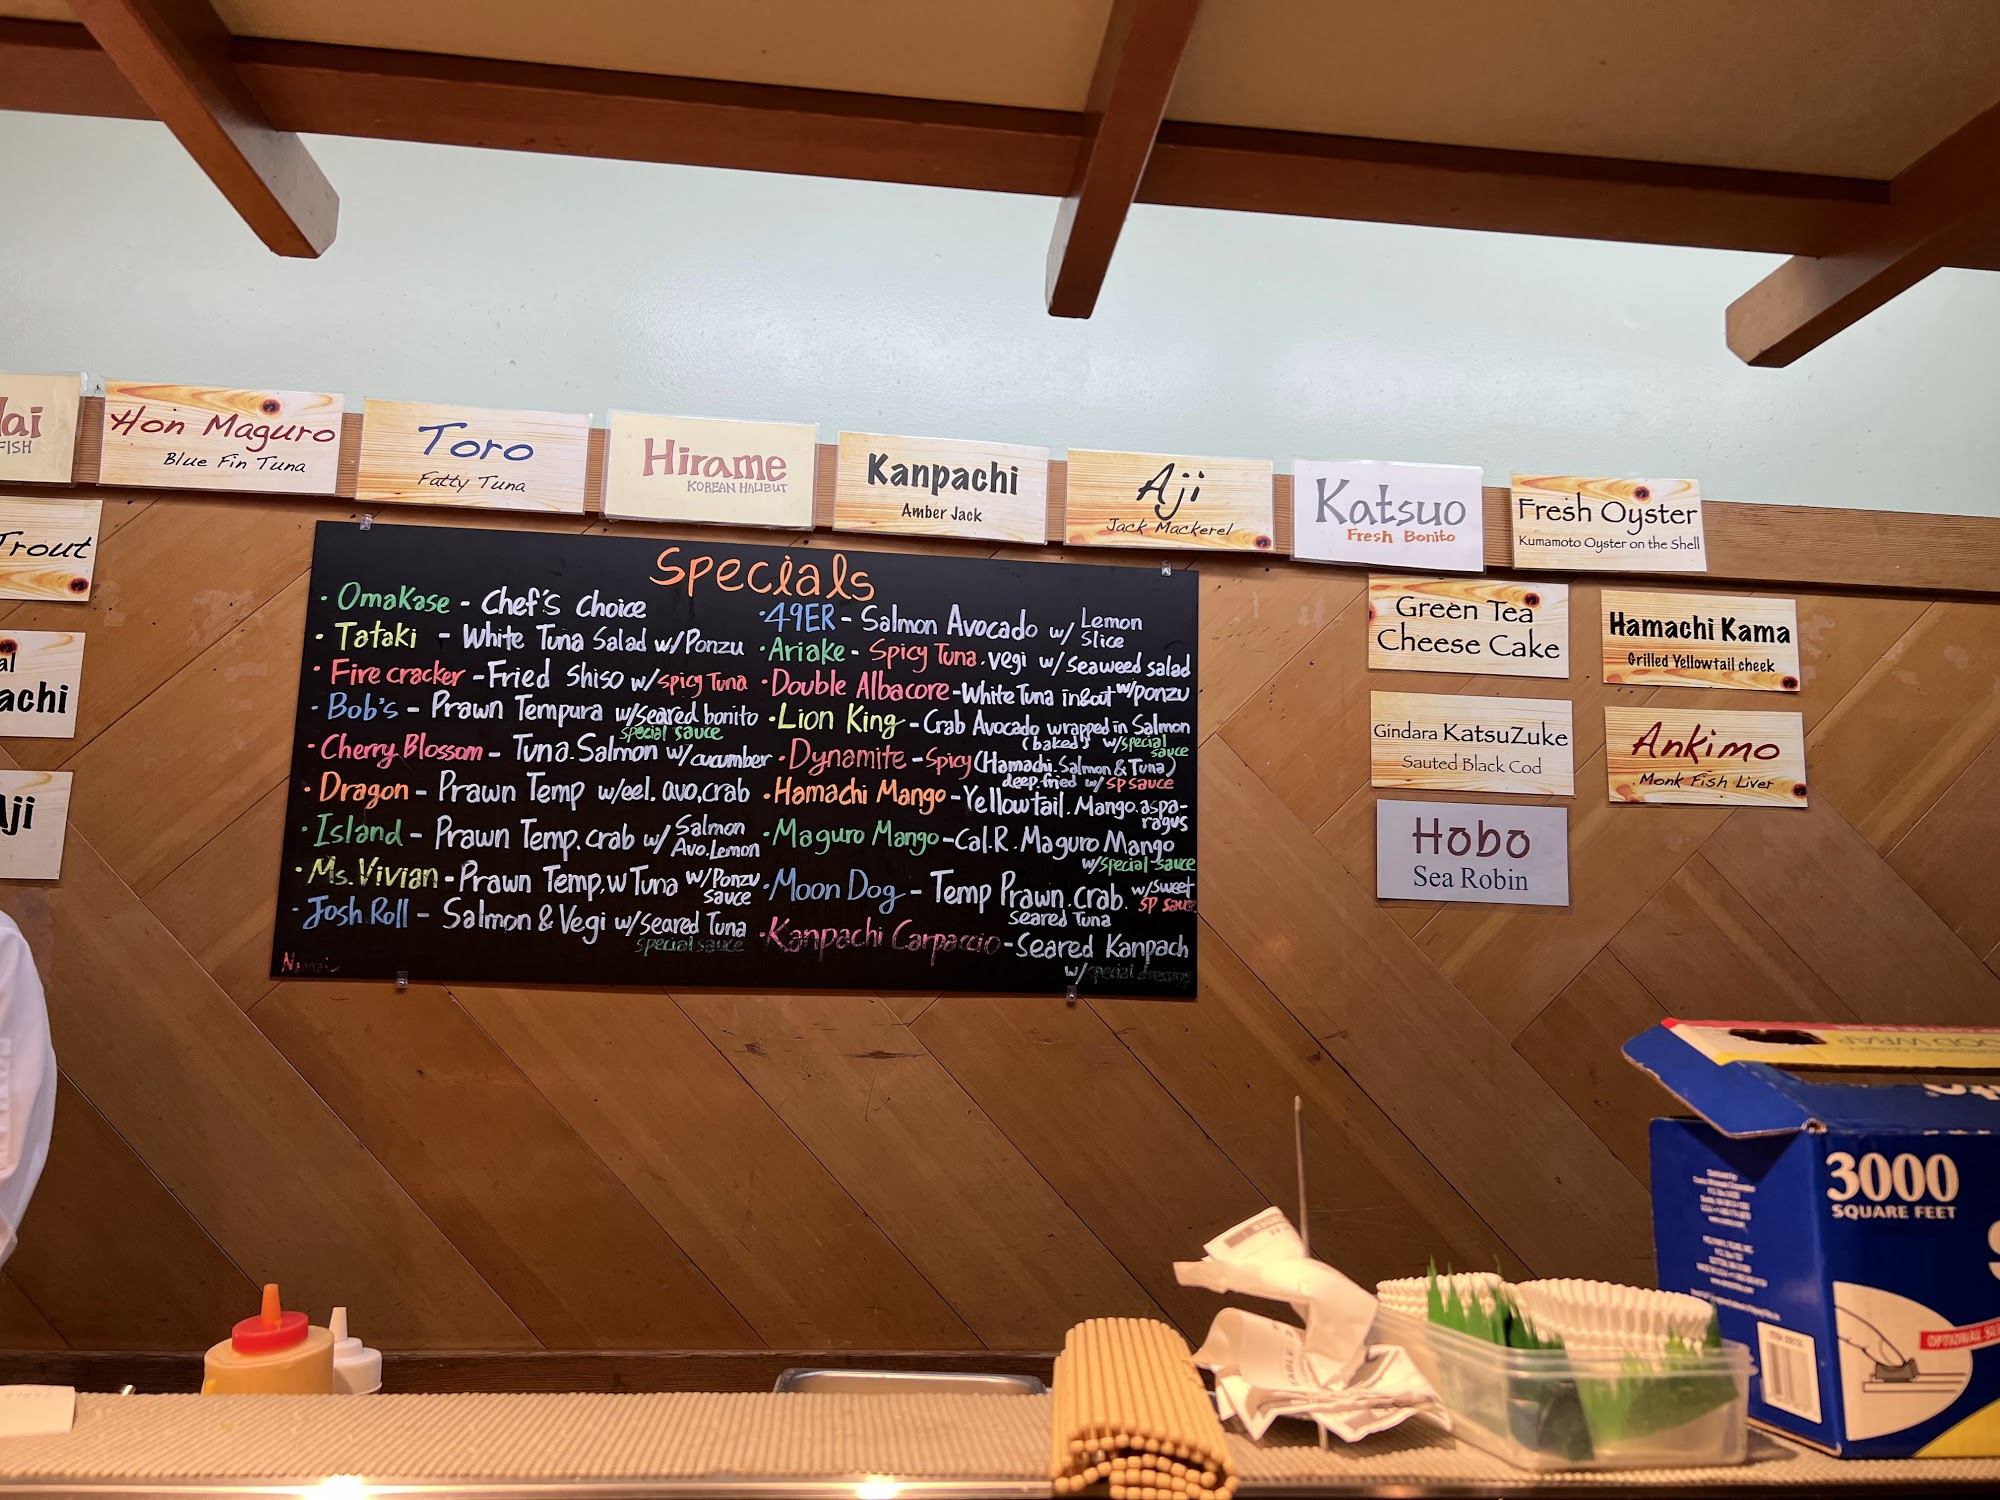 ai
FISH
Hon Maguro
Blue Fin Tuna
Toro
Fatty Tuna
Hirame
KOREAN HALIBUT
Kanpachi
Amber Jack
Aji
Jack Mackerel
Katsuo
Fresh Bonito
Fresh Oyster
Kumamoto Oyster on the Shell
Trout
al
achi
Aji
Specials
· Omakase - Chef's Choice
· Tataki - White Tuna Salad w/ Ponzu
· Fire cracker - Fried Shiso w/ spicy Tuna
· Bob's - Prawn Tempura w/seared bonito
special sauce
· Cherry Blossom - Tuna.Salmon w/cucumber
· Dragon - Prawn Temp w/eel.avo,crab
· Island - Prawn Temp.crab w/ Salmon
Avo.Lemon
· Ms.Vivian - Prawn Temp.w Tuna w/Ponzu
sauce
· Josh Roll - Salmon & Vegi w/seared Tuna
special sauce
· 49ER - Salmon Avocado w/ Lemon
Slice
· Ariake - Spicy Tuna.vegi w/seaweed salad
· Double Albacore - White Tuna in&out w/ponzu
· Lion King - Crab Avocado wrapped in Salmon
(baked) w/special
sauce
· Dynamite - Spicy (Hamachi.Salmon & Tuna)
deep.fried w/ SP sauce
· Hamachi Mango - Yellowtail.Mango.aspa-
ragus
· Maguro Mango - Cal.R.Maguro Mango
w/special sauce
· Moon Dog - Temp Prawn.crab. w/sweet
seared Tuna SP sauce
· Kanpachi Carpaccio - Seared Kanpach
w/special dressing
Green Tea
Cheese Cake
Hamachi Kama
Grilled Yellowtail cheek
Gindara KatsuZuke
Sauted Black Cod
Ankimo
Monk Fish Liver
Hobo
Sea Robin
3000
SQUARE FEET